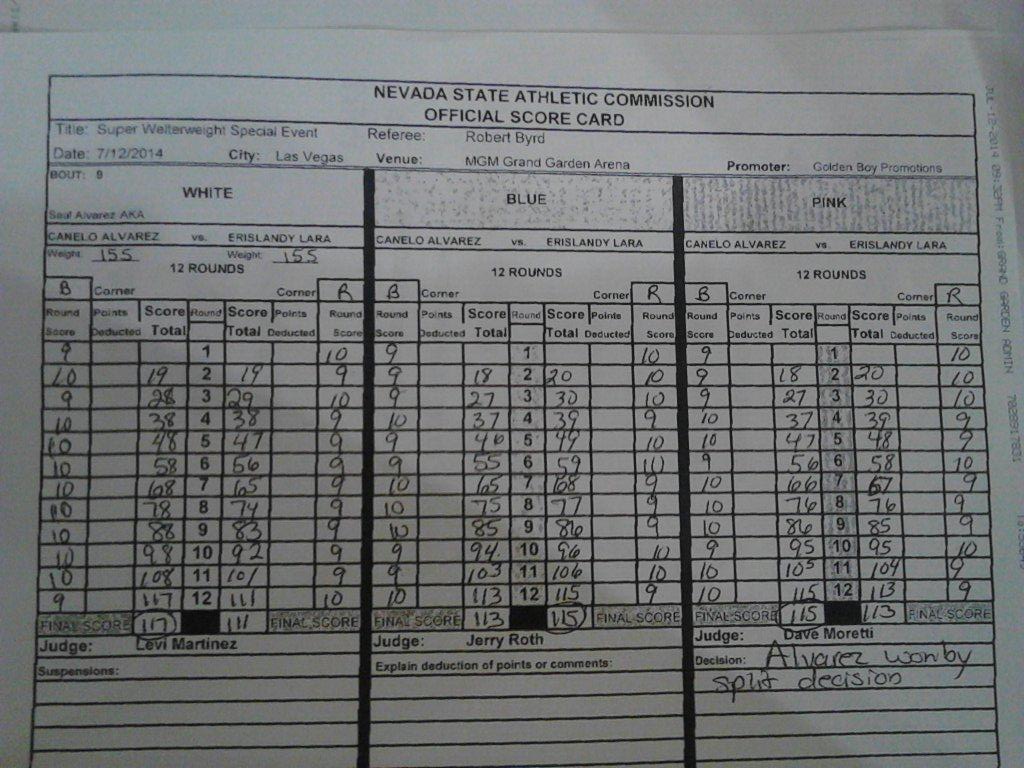 NEVADA STATE ATHLETIC COMMISSION
OFFICIAL SCORE CARD
Title: Super Welterweight Special Event Referee: Robert Byrd
Date: 7/12/2014 City: Las Vegas Venue: MGM Grand Garden Arena Promoter: Golden Boy Promotions
BOUT: 9
WHITE BLUE PINK
Saul Alvarez AKA
CANELO ALVAREZ vs. ERISLANDY LARA CANELO ALVAREZ vs. ERISLANDY LARA CANELO ALVAREZ vs. ERISLANDY LARA
Weight 155 Weight 155
12 ROUNDS 12 ROUNDS 12 ROUNDS
B Corner Corner R B Corner Corner R B Corner Corner R
Round Points Score Round Score Points Round Round Points Score Round Score Points Round Round Points Score Round Score Points Round
Score Deducted Total Total Deducted Score Score Deducted Total Total Deducted Score Score Deducted Total Total Deducted Score
9 1 10 9 1 10 9 1 10
10 19 2 19 9 9 18 2 20 10 9 18 2 20 10
9 28 3 29 10 9 27 3 30 10 9 27 3 30 10
10 38 4 38 9 10 37 4 39 9 10 37 4 39 9
10 48 5 47 9 9 46 5 49 10 10 47 5 48 9
10 58 6 56 9 9 55 6 59 10 9 56 6 58 10
10 68 7 65 9 10 65 7 68 9 10 66 7 67 9
10 78 8 74 9 10 75 8 77 9 10 76 8 76 9
10 88 9 83 9 10 85 9 86 9 10 86 9 85 9
10 98 10 92 9 9 94 10 96 10 9 95 10 95 10
10 108 11 101 9 9 103 11 106 10 10 105 11 104 9
9 117 12 111 10 10 113 12 115 9 10 115 12 113 9
FINAL SCORE 117 111 FINAL SCORE FINAL SCORE 113 115 FINAL SCORE FINAL SCORE 115 113 FINAL SCORE
Judge: Levi Martinez Judge: Jerry Roth Judge: Dave Moretti
Suspensions: Explain deduction of points or comments: Decision: Alvarez won by
split decision
JUL-12-2014 09:32PM From:GRAND GARDEN ADMIN 7028917831